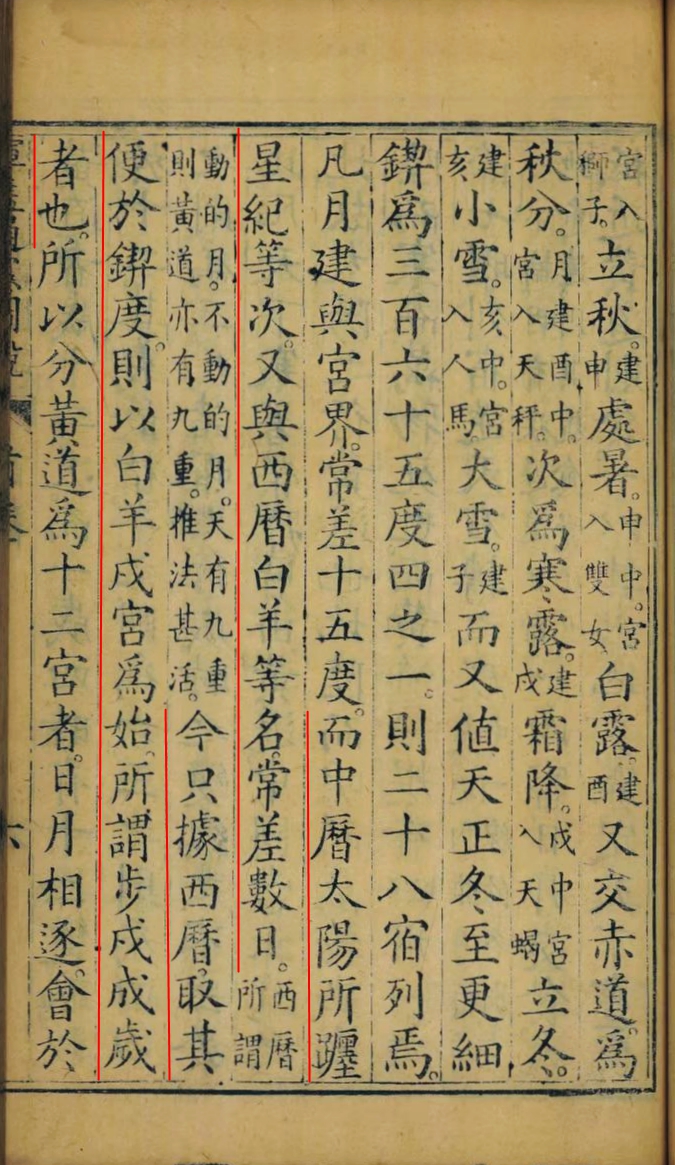 宮入獅子。立秋。建申處暑。申中。宮入雙女白露。建酉又交赤道。爲
秋分。月建酉中。宮入天秤。次爲寒露。建戌霜降。戌中宮入天蝎立冬。
建亥小雪。亥中。宮入人馬。大雪。建子而又値天正冬至更細
鍥爲三百六十五度四之一。則二十八宿列焉。
凡月建與宮界。常差十五度。而中曆太陽所躔
星紀等次。又與西曆白羊等名。常差數日。西曆所謂
動的月。不動的月。天有九重則黃道亦有九重。推法甚活。今只據西曆。取其
便於鍥度。則以白羊戌宮爲始。所謂步戌成歲
者也。所以分黃道爲十二宮者。日月相逐。會於
首卷
六